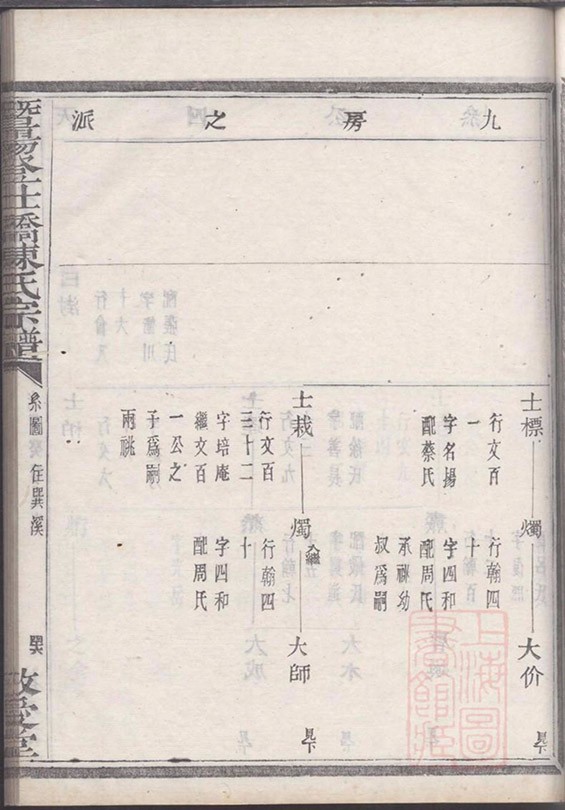 九房之派
士標
行文百
一
字名揚
配蔡氏
燭
行翰四
十
字四和
配周氏
承祧幼
叔爲嗣
大价
見下
士栽
行文百
三十二
字培庵
繼文百
一公之
子爲嗣
兩祧
燭
入繼
行翰四
十
字四和
配周氏
大師
見下
暨陽登仕橋陳氏宗譜
系圖
住巽溪
敬愛堂
上海圖書館藏